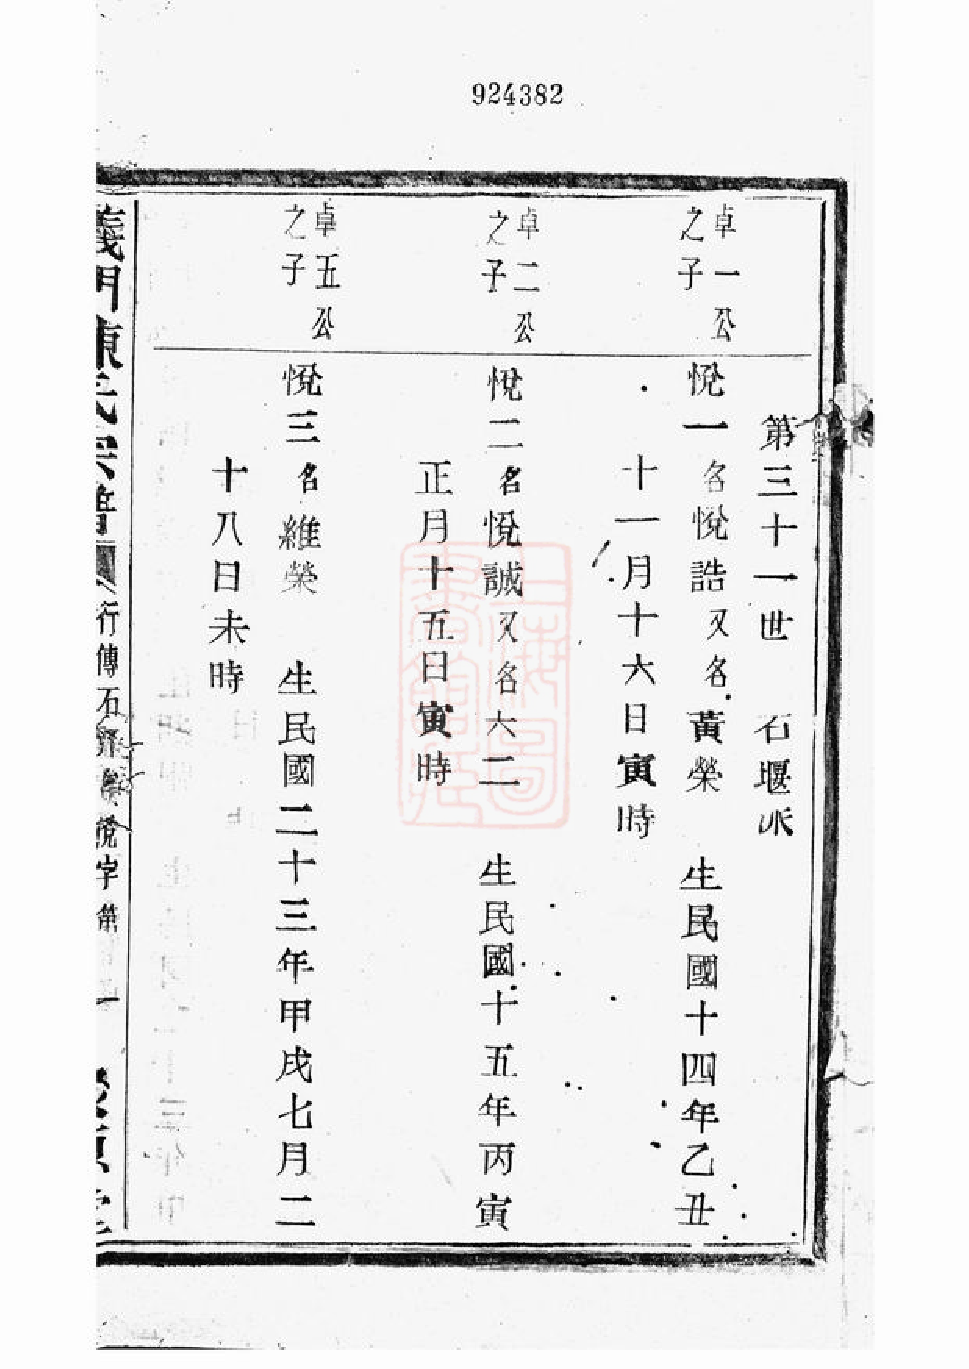 924382
第三十一世 石堰派
卓一公
之子
悅一名悅誥又名黃榮 生民國十四年乙丑
十一月十六日寅時
卓二公
之子
悅二名悅誠又名六二 生民國十五年丙寅
正月十五日寅時
卓五公
之子
悅三名維榮 生民國二十三年甲戌七月二
十八日未時
義門陳氏宗譜 行傳石 悅字第 一